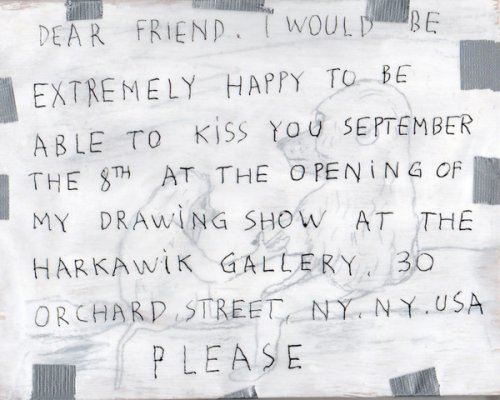 DEAR FRIEND. I WOULD BE
EXTREMELY HAPPY TO BE
ABLE TO KiSS YOU SEPTEMBER
THE 8TH AT THE OPENiNG OF
MY DRAWiNG SHOW AT THE
HARKAWiK GALLERY, 30
ORCHARD, STREET, NY. NY. USA
PLEASE